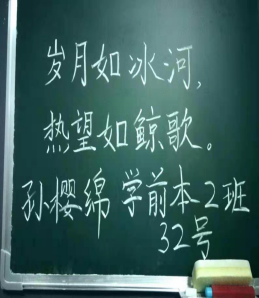 岁月如冰河,
热望如鲸歌。
孙樱绵 学前本2班
32号